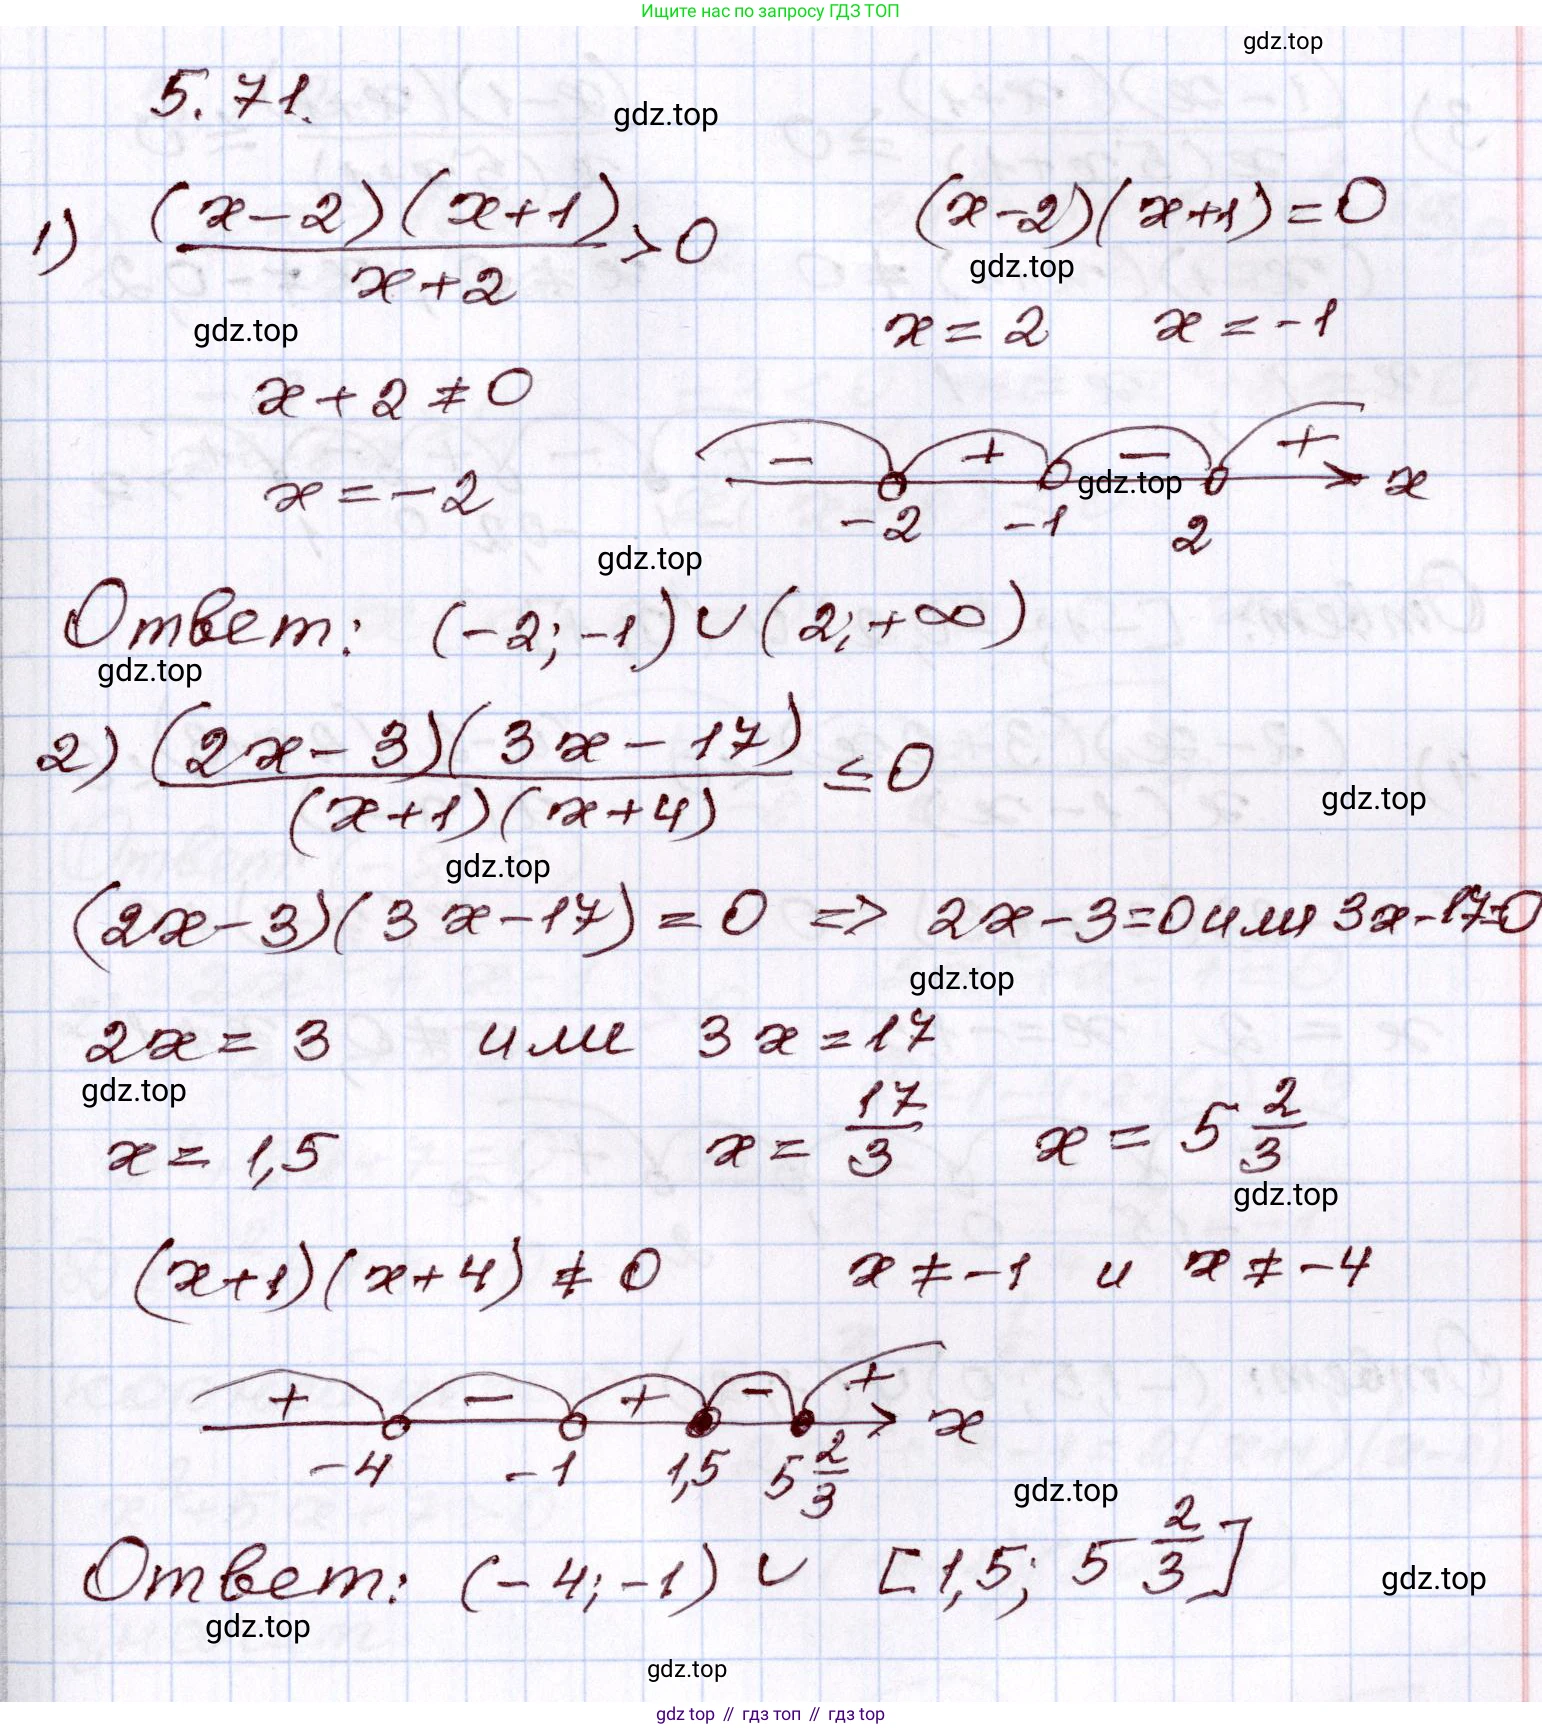 Ищите нас по запросу ГДЗ ТОП
gdz.top
5.71.
gdz.top
1) (x-2)(x+1)/x+2 > 0   (x-2)(x+1)=0
gdz.top
gdz.top
x = 2   x = -1
x + 2 ≠ 0
- + - + x
gdz.top
x = -2
-2 -1 2
gdz.top
Ответ: (-2; -1) ∪ (2; +∞)
gdz.top
2) (2x-3)(3x-17)/(x+1)(x+4) ≤ 0
gdz.top
gdz.top
(2x-3)(3x-17) = 0 => 2x-3=0 или 3x-17=0
gdz.top
2x = 3 или 3x = 17
gdz.top
x = 1,5   x = 17/3   x = 5 2/3
gdz.top
(x+1)(x+4) ≠ 0   x ≠ -1 и x ≠ -4
+ - + - + x
-4 -1 1,5 5 2/3
gdz.top
Ответ: (-4; -1) ∪ [1,5; 5 2/3]
gdz.top
gdz.top
gdz.top
gdz top // гдз топ // гдз top